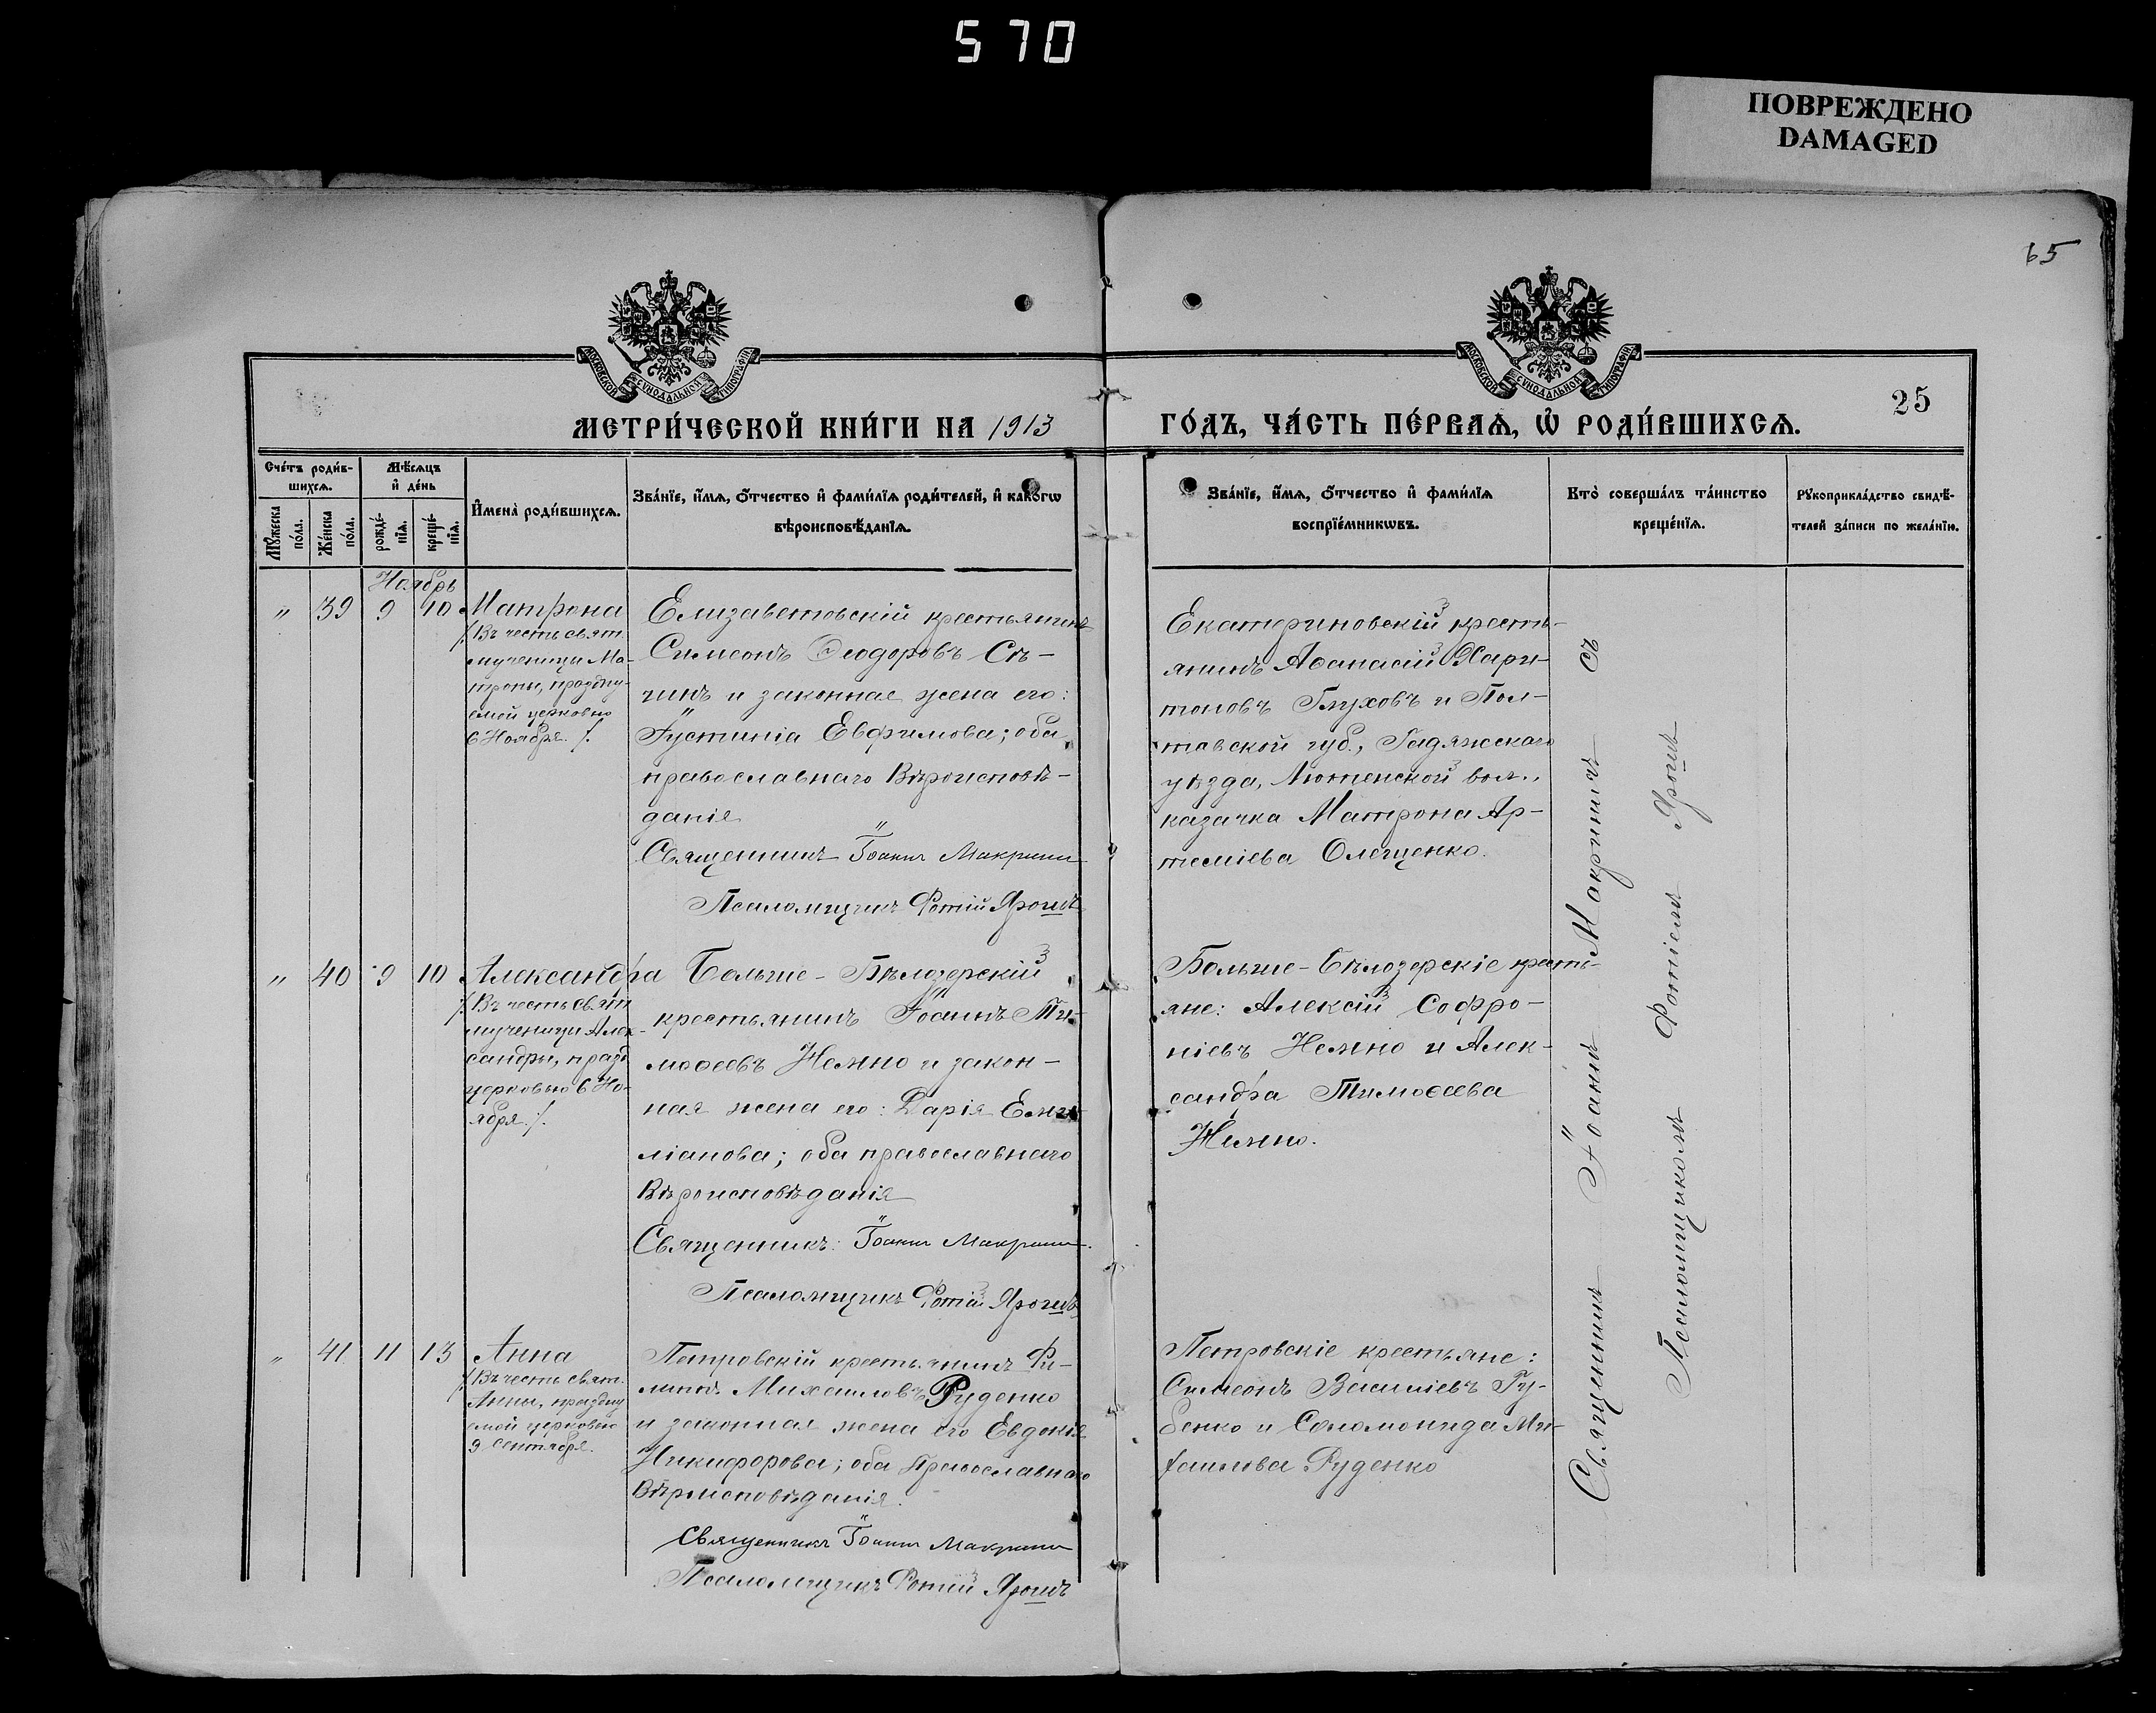 570
ПОВРЕЖДЕНО
DAMAGED
65
МОСКОВСКОЙ СУНОДАЛЬНОЙ ТИПОГРАФІИ
МОСКОВСКОЙ СУНОДАЛЬНОЙ ТИПОГРАФІИ
25
МЕТРИ́ЧЕСКОЙ КНИ́ГИ НА 1913
ГО́ДЪ, ЧА́СТЬ ПЕ́РВАѦ, Ѡ҆ РОДИ́ВШИХСѦ.
Сче́тъ роди́в-
шихсѧ.
Мѣ́сѧцъ
и҆ де́нь
Мꙋ́жеска
по́ла.
Же́нска
по́ла.
рожде́-
нїѧ.
креще́-
нїѧ.
И҆мена̀ роди́вшихсѧ.
Зва́нїе, и҆́мѧ, ѻ҆́тчество и҆ фами́лїѧ роди́телей, и҆ како́гѡ
вѣроисповѣ́данїѧ.
Зва́нїе, и҆́мѧ, ѻ҆́тчество и҆ фами́лїѧ
воспрїе́мникѡвъ.
Кто̀ соверша́лъ та́инство
креще́нїѧ.
Рꙋкоприкла́дство свидѣ́-
телей за́писи по жела́нїю.
Ноябрь
" 39 9 10 Матрона
/:Въ честь свят.
мученицы Ма-
троны, праздну-
емой церковью
6 Ноября. :/.
Елизаветовскій крестьянинъ
Симеонъ Ѳеодоровъ Сѣ-
чинъ и законная жена его:
Іустинія Евфимова; оба
православнаго Вѣроисповѣ-
данія
Священникъ Іоаннъ Макринъ
Псаломщикъ Фотій Ярошъ
Екатериновскій кресть-
янинъ Аѳанасій Хари-
тоновъ Глуховъ и Пол-
тавской губ., Гадячскаго
уѣзда, Лютенской вол.,
казачка Матрона Ар-
теміева Олещенко.
" 40 9 10 Александра
/:Въ честь свят
мученицы Алек-
сандры, празд
церковью 6 Но-
ября. :/.
Больше-Бѣлозерскій
крестьянинъ Іоаннъ Ти-
моѳеевъ Нежно и закон-
ная жена его: Дарія Еми-
ліанова; оба православнаго
Вѣроисповѣданія
Священникъ: Іоаннъ Макринъ
Псаломщикъ Фотій Ярошъ
Больше-Бѣлозерскіе кресть-
яне: Алексій Софро-
ніевъ Нежно и Алек-
сандра Тимоѳеева
Нежно.
" 41 11 13 Анна
/:Въ честь свят.
Анны, праздну
емой церковью
9 Сентября.
Петровскій крестьянинъ Фи-
липпъ Михаиловъ Руденко
и законная жена его Евдокія
Никифорова; оба Православнаго
Вѣроисповѣданія.
Священникъ Іоаннъ Макринъ
Псаломщикъ Фотій Ярошъ
Петровскіе крестьяне:
Симеонъ Василіевъ Гу-
бенко и Соломонида Ми-
хаилова Руденко
Священникъ Іоаннъ Макринъ съ
Псаломщикомъ Фотіемъ Ярошъ